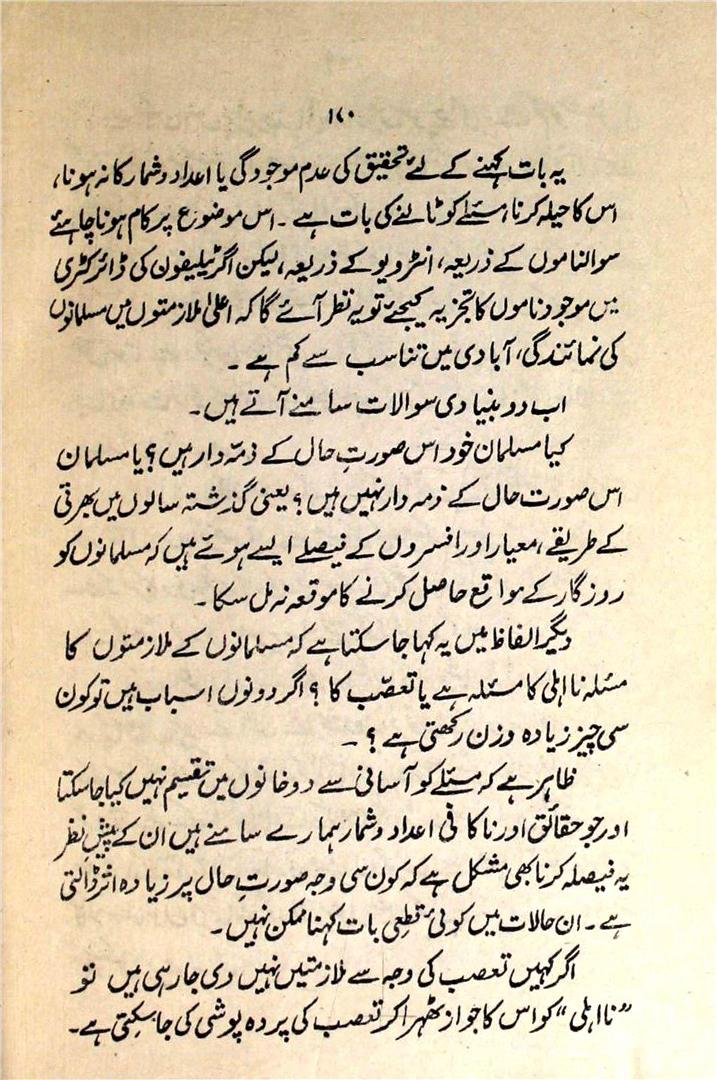 ۱۷۰
یہ بات کہنے کے لئے تحقیق کی عدم موجودگی یا اعداد و شمار کا نہ ہونا،
اس کا حیلہ کرنا، مسئلے کو ٹالنے کی بات ہے ۔ اس موضوع پر کام ہونا چاہئے
سوالناموں کے ذریعہ، انٹرویو کے ذریعہ، لیکن اگر ٹیلیفون کی ڈائرکٹری
میں موجود ناموں کا تجزیہ کیجئے تو یہ نظر آئے گا کہ اعلیٰ ملازمتوں میں مسلمانوں
کی نمائندگی، آبادی میں تناسب سے کم ہے ۔
اب دو بنیادی سوالات سامنے آتے ہیں ۔
کیا مسلمان خود اس صورتِ حال کے ذمّہ دار ہیں؟ یا مسلمان
اس صورت حال کے ذمہ دار نہیں ہیں؟ یعنی گذشتہ سالوں میں بھرتی
کے طریقے، معیار اور افسروں کے فیصلے ایسے ہوئے ہیں کہ مسلمانوں کو
روزگار کے مواقع حاصل کرنے کا موقعہ نہ مل سکا ۔
دیگر الفاظ میں یہ کہا جا سکتا ہے کہ مسلمانوں کے ملازمتوں کا
مسئلہ نااہلی کا مسئلہ ہے یا تعصّب کا؟ اگر دونوں اسباب ہیں تو کون
سی چیز زیادہ وزن رکھتی ہے؟ ۔
ظاہر ہے کہ مسئلے کو آسانی سے دو خانوں میں تقسیم نہیں کیا جا سکتا
اور جو حقائق اور ناکافی اعداد و شمار ہمارے سامنے ہیں ان کے پیشِ نظر
یہ فیصلہ کرنا بھی مشکل ہے کہ کون سی وجہ صورتِ حال پر زیادہ اثر ڈالتی
ہے ۔ ان حالات میں کوئی قطعی بات کہنا ممکن نہیں ۔
اگر کہیں تعصب کی وجہ سے ملازمتیں نہیں دی جا رہی ہیں تو
”نااہلی“ کو اس کا جواز ٹھہرا کر تعصب کی پردہ پوشی کی جا سکتی ہے ۔